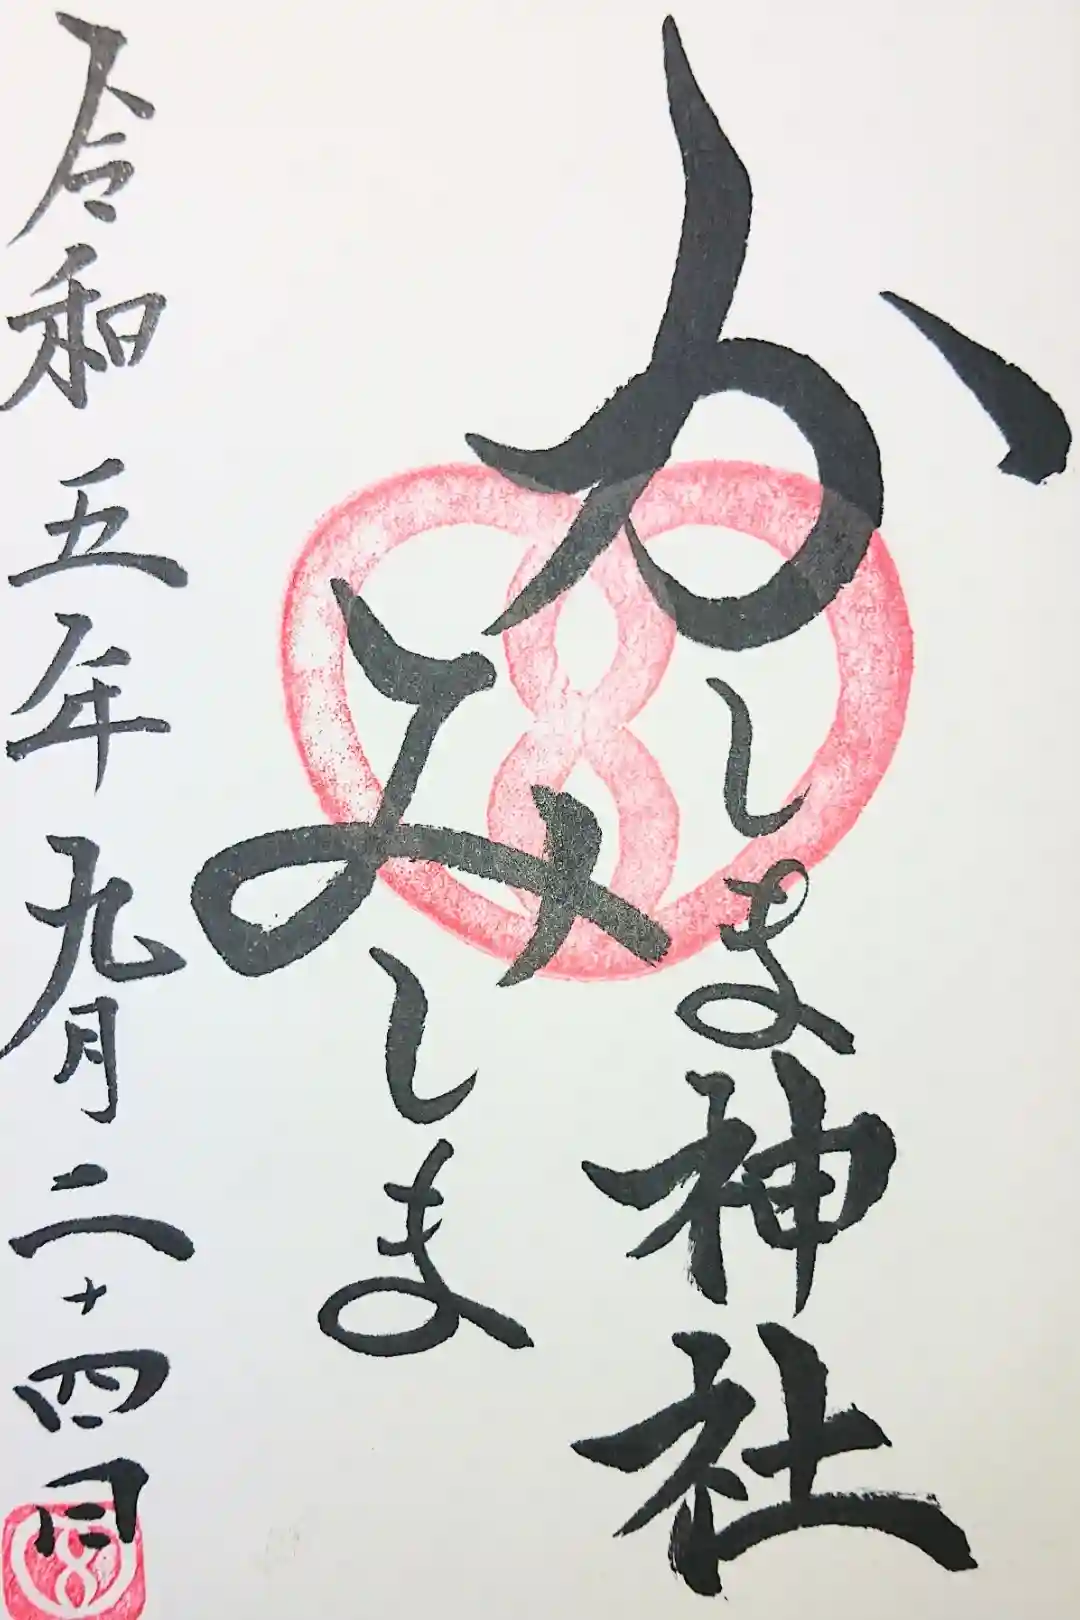 かしま神社
みしま
令和五年九月二十四日